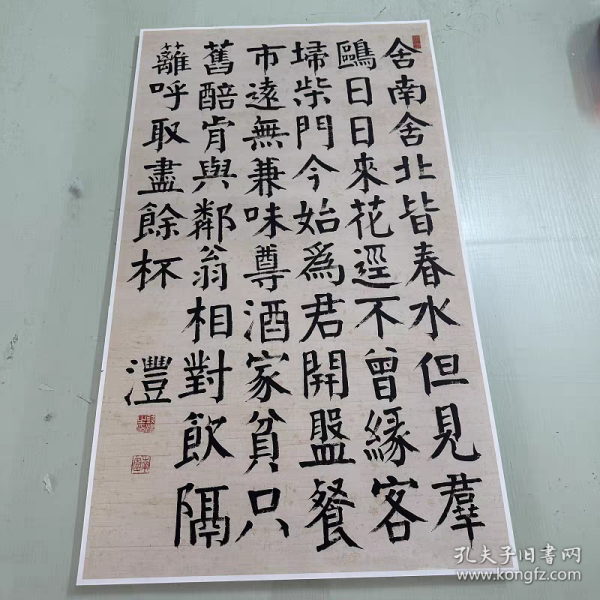 舍南舍北皆春水但見羣
鷗日日來花逕不曾緣客
埽柴門今始爲君開盤餐
市遠無兼味尊酒家貧只
舊醅肯與鄰翁相對飲隔
蘺呼取盡餘杯
灃
孔夫子旧书网
www.kongfz.com